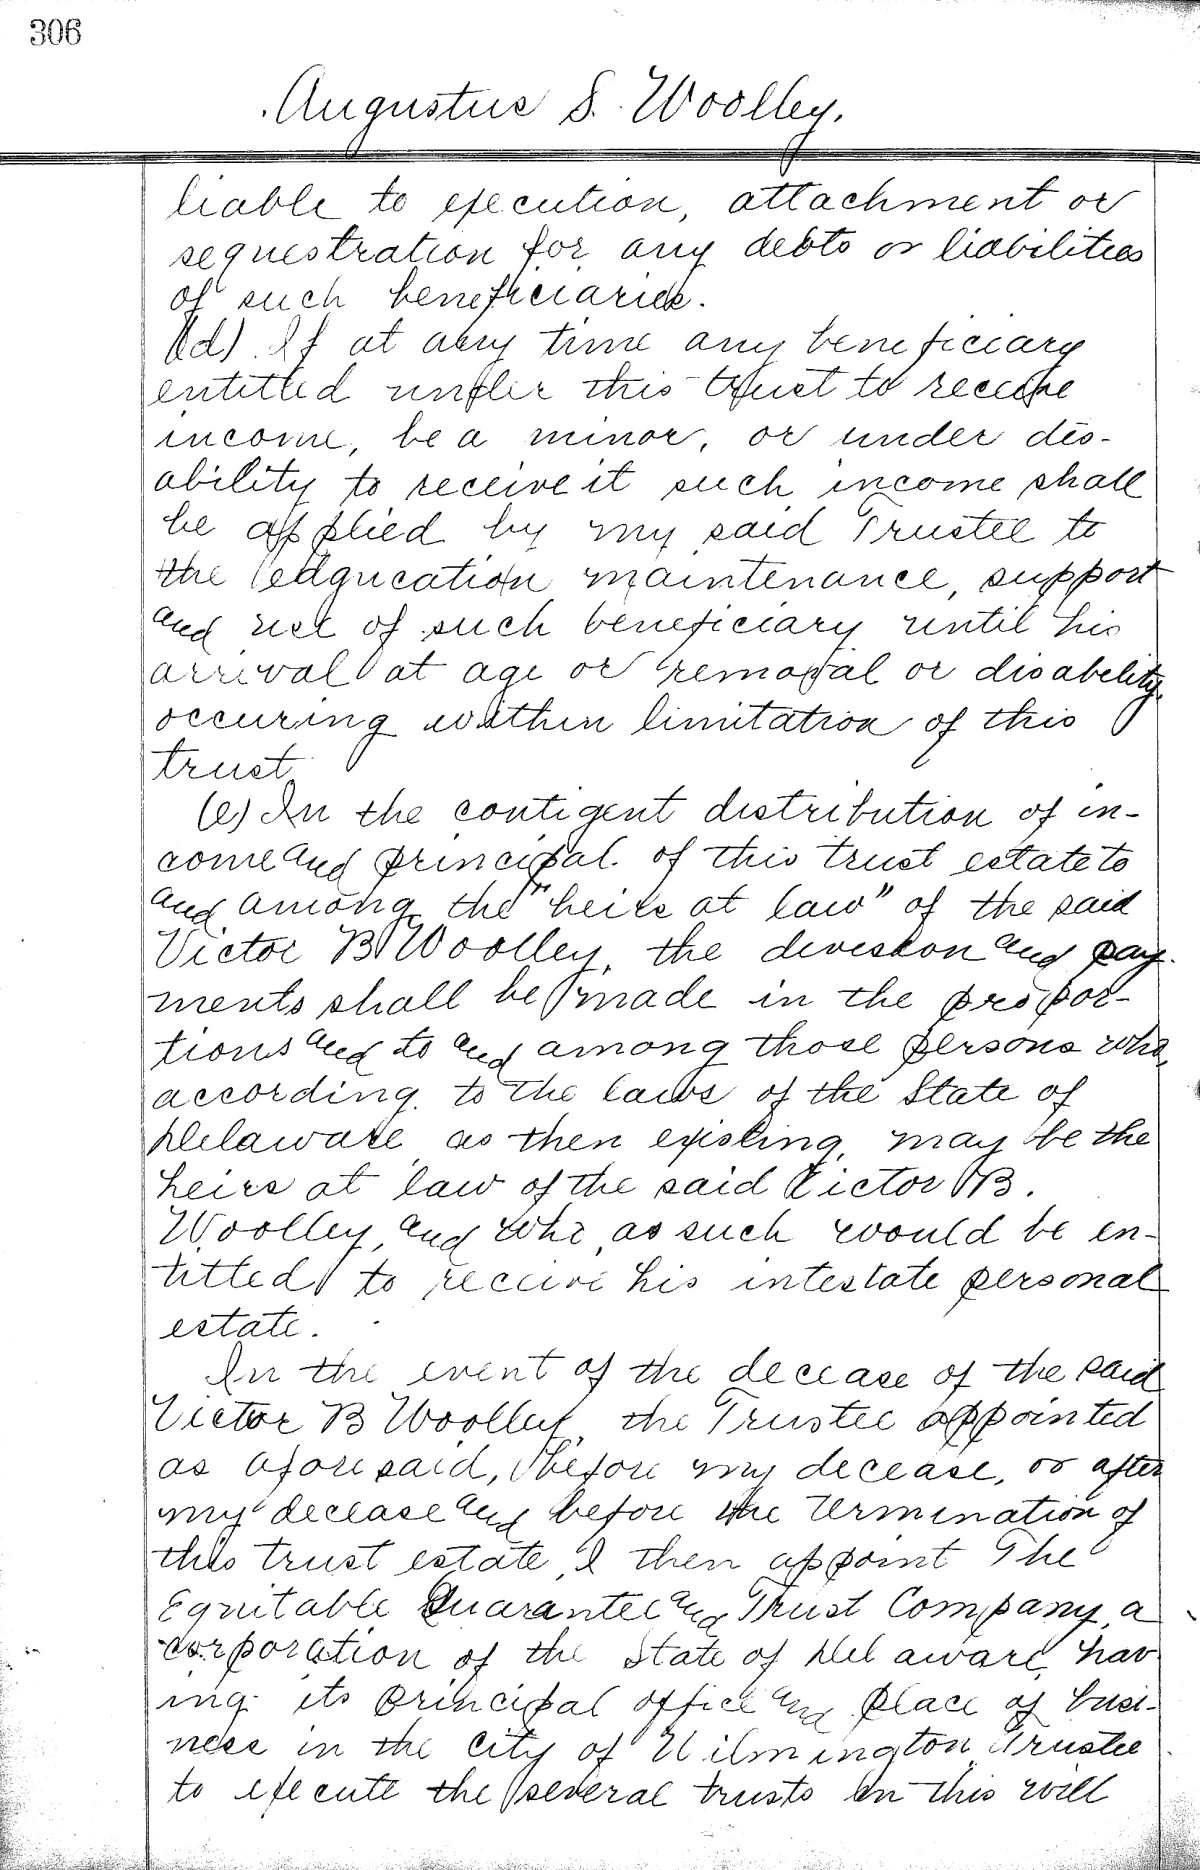 306
Augustus S. Woolley.
liable to execution, attachment or
sequestration for any debts or liabilities
of such beneficiaries.
(d) If at any time any beneficiary
entitled under this trust to receive
income, be a minor, or under dis-
ability to receive it such income shall
be applied by my said Trustee to
the education maintenance, support
and use of such beneficiary until his
arrival at age or removal or disability
occuring within limitation of this
trust
(e) In the contigent distribution of in-
come and principal of this trust estate to
and among the "heirs at law" of the said
Victor B Woolley, the division and pay-
ments shall be made in the propor-
tions and to and among those persons who,
according to the laws of the State of
Delaware as then existing, may be the
heirs at law of the said Victor B.
Woolley, and who, as such would be en-
titled to receive his intestate personal
estate.
In the event of the decease of the said
Victor B Woolley, the Trustee appointed
as aforesaid, before my decease, or after
my decease and before the termination of
this trust estate, I then appoint The
Equitable Guarantee and Trust Company, a
corporation of the State of Delaware, hav
ing its principal office and place of busi-
ness in the City of Wilmington, Trustee
to execute the several trusts in this will